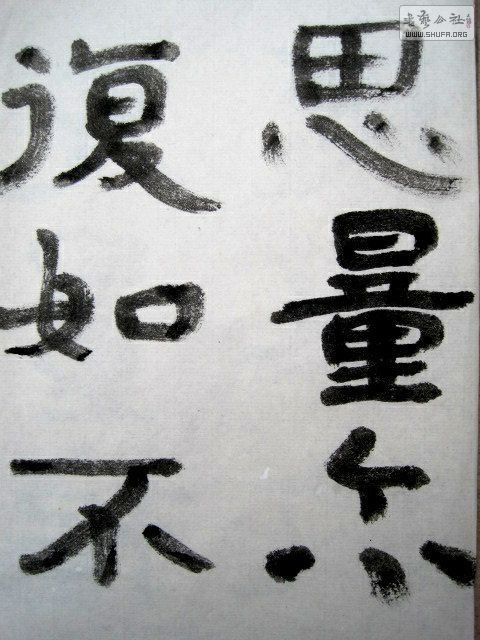 书艺公社
WWW.SHUFA.ORG
思量亦
復如不